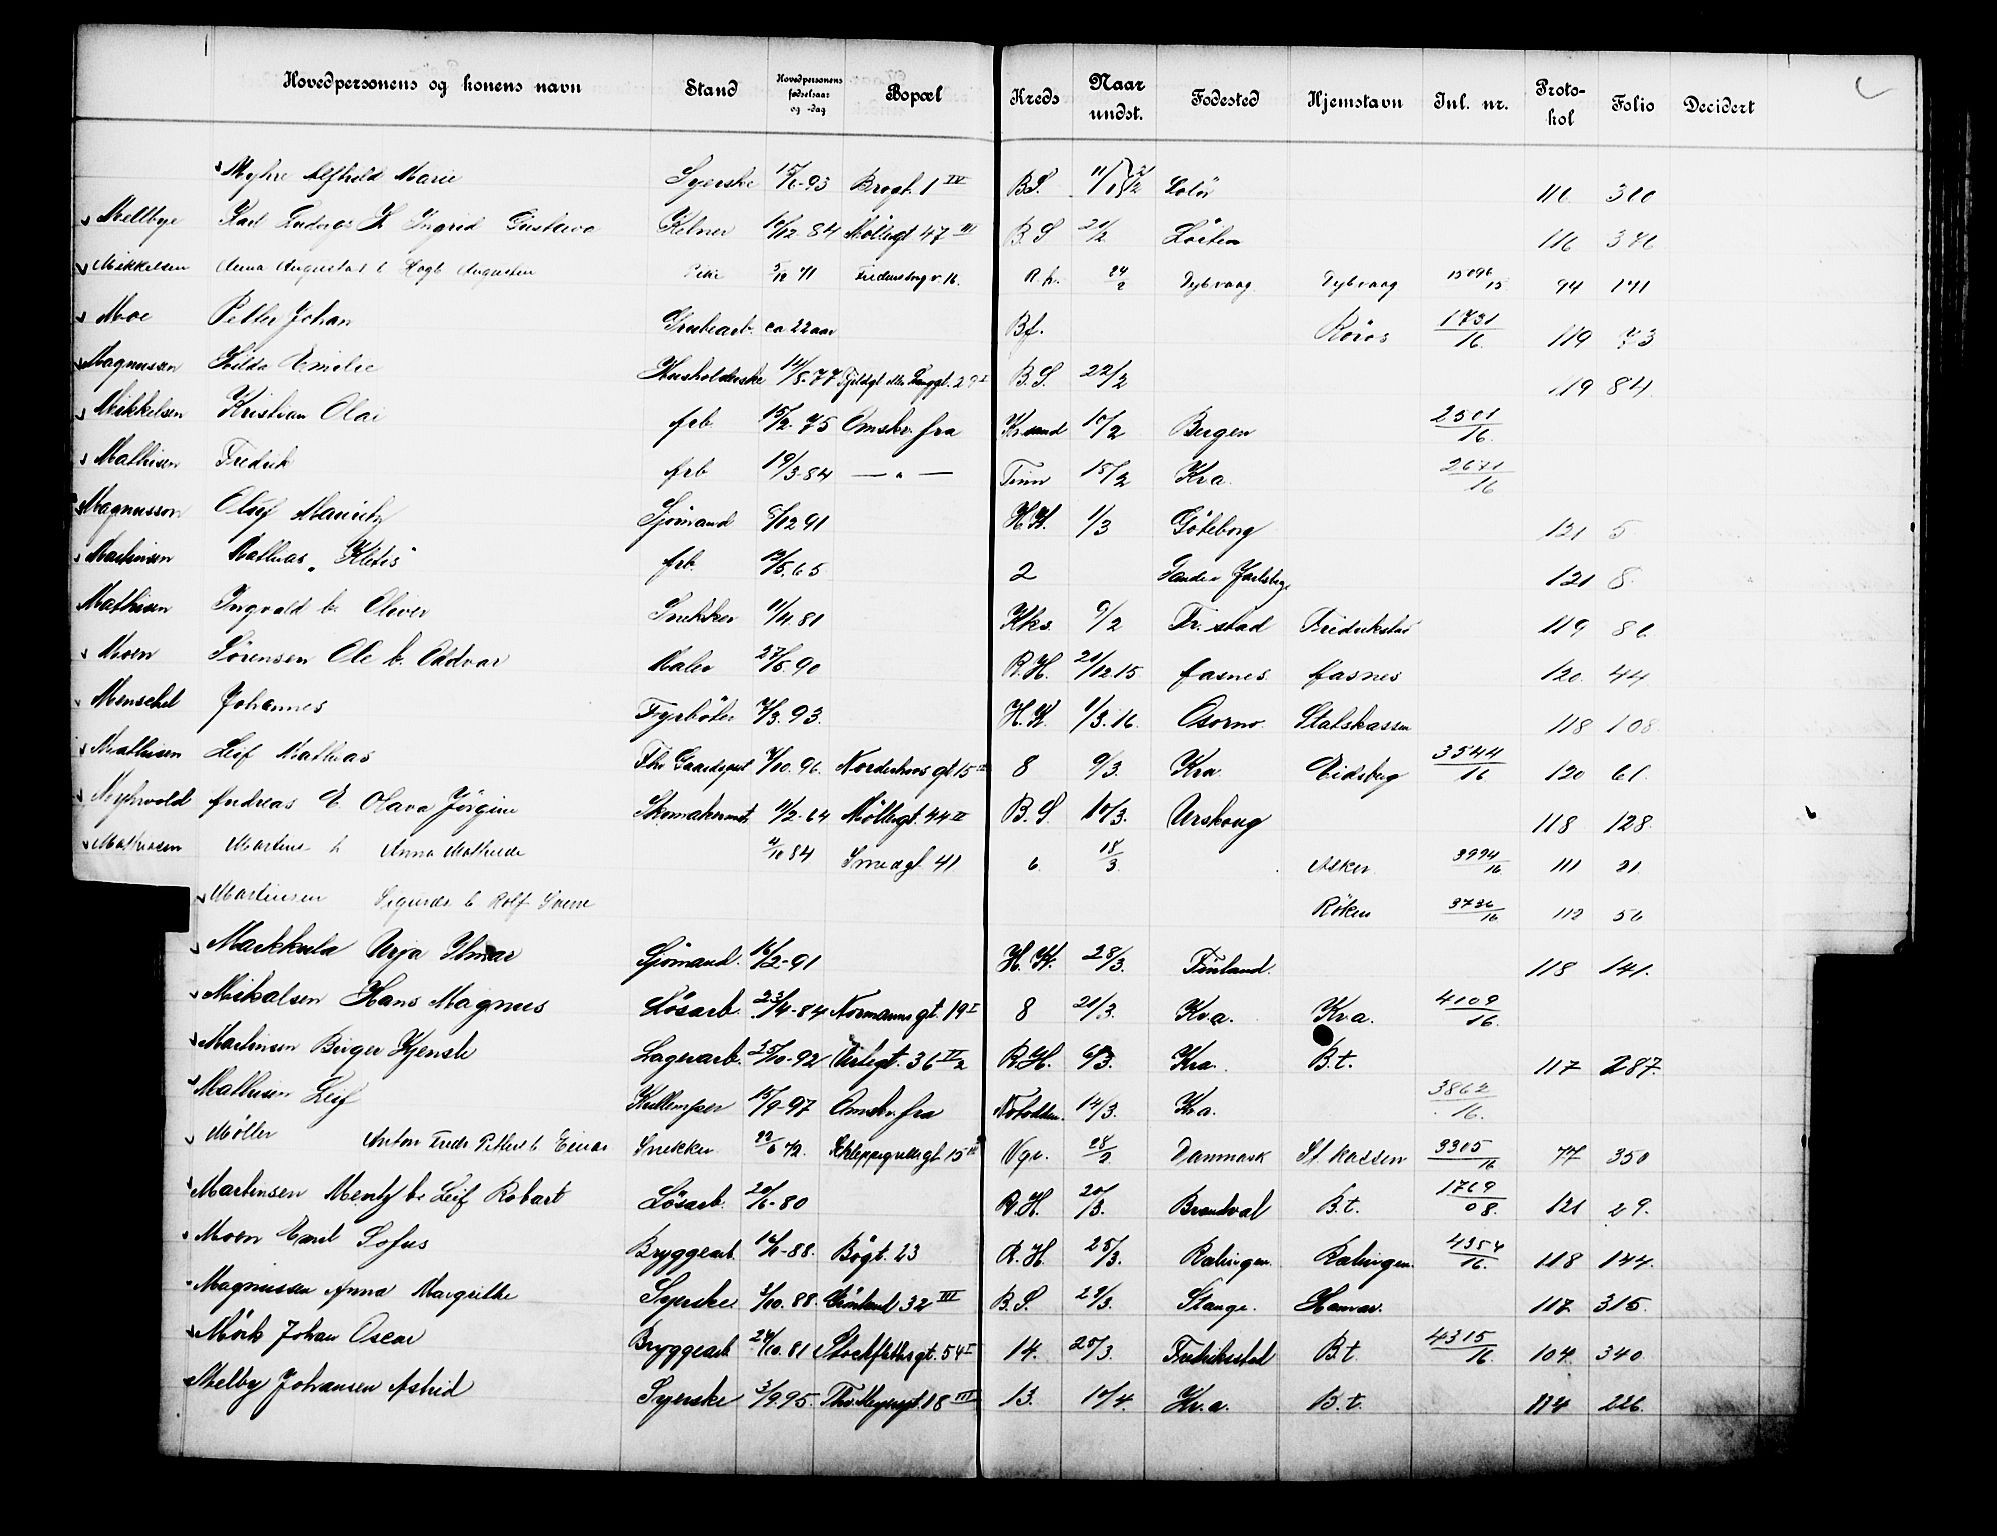 Hovedpersonens og konens navn Stand Hovedpersonens fødselsaar og -dag Bopæl Kreds Naar undst. Fødested Hjemstavn Inl. nr. Proto-kol Folio Decidert
Myhre Alfhild Marie Syerske 15/6-93 Brogt. 1 IV B.S. 116 310
Mellbye Karl Ingrid Gustava Kelner 10/12 84 Møllegt 47 III B.S 21/2 Löiten 116 346
Mikkelsen Anna Augusta b. Augusten Pike 5/10 71 Fredensborg v. 16. R.h. 24/2 Dybvaag Dybvaag 15096/15 94 141
Moe Petter Johan Grubearb. ca 22 aar Bf. Røros 1731/16. 119 73
Magnussen Hilda Emilie Husholderske 14/8.77 Langgt. 29 I B.S. 22/2 119 84.
Mikkelsen Kristian Olai Arb 15/2.75 Omskr. fra Kr.sand 10/2 Bergen 2501/16.
Mathisen Fredrik Arb 19/3.84 — " — Tinn 15/2 Kra. 2671/16
Magnusson Oluf Mauritz Sjømand 5/12 91 H.H. 1/3 Göteborg 121 5
Martinsen Mathias "Kletis" Arb. 12/5.65 2 Sande Jarlsberg 121 8.
Mathisen Ingvald b. Oliver Snekker 11/11.81 Kks. 9/2 Fr.stad Fredrikstad 119 86.
Moen Sørensen Ole b. Oddvar Maler 27/5.90 R.H. 21/12.15 Aasnes. Aasnes 120. 44
Menschel Johannes Fyrbøter 7/3.93. H.H. 1/3.16. Osorno. Statskassen 118 108.
Mathisen Leif Mathias Fhv Gaardsgut 7/10.96. Norderhovsgt 15 8 9/3. Kra Eidsberg 3544/16 120 61.
Myhrvold Andreas E. Olava Jørgine Skomakermst. 11/2-64 Møllegt. 44 II B.S. 10/3. Urskoug 118 128.
Mathiesen Martine b Anna Mathilde 2/10 84 Smedgt 41 6. 18/3 Asker 3994/16 111 21
Martinsen Sigurd b. Rolf Sverre Røken 3736/16 112 56
Markkula Urja Ilmar Sjømand. 16/2-91 H.H. 28/3. Finland. 118 141.
Mikalsen Hans Magnus Løsarb. 23/4-84 Normannsgt. 19 I 8 21/3. Kra. Kra. 4109/16.
Martinsen Birger Kjensli Lagerarb. 25/10-92 36 II 2 R.H. 6/3. Kra. B.t. 117 287.
Mathisen Leif Kullemper 15/9-97 Omskr. fra Notodden. 14/3. Kra. 3862/16.
Møller Anton Fredr Petter b Einar Snekker 22/6 72. Schleppegrellsgt. 15 III Vgv. 28/2 Danmark St. kassen 3305/16 77 350
Martinsen Mentz b. Leif Robart Løsarb. 20/6-80 R.H. 20/3. Brandval B.t. 1769/08. 121 29.
Moen Emil Sofus Bryggearb 16/11-88. Bøgt. 23 R.H. 25/3. Rælingen. Rælingen. 4354/16. 118 144.
Magnussen Anna Margrithe Syerske 3/10.88. Grønland 32 III B.S. 29/3. Stange. Hamar. 117 315.
Mørk Johan Oscar Bryggearb 24/10.81 Stockfletsgt. 54 I 14. 25/3. Fredriksstad B.t 4315/16. 104. 340.
Melby Johansen Astrid Syerske 3/9.95. Thv. Meyersgt. 18 III 13. 10/4. Kr.a. B.t. 114 226.